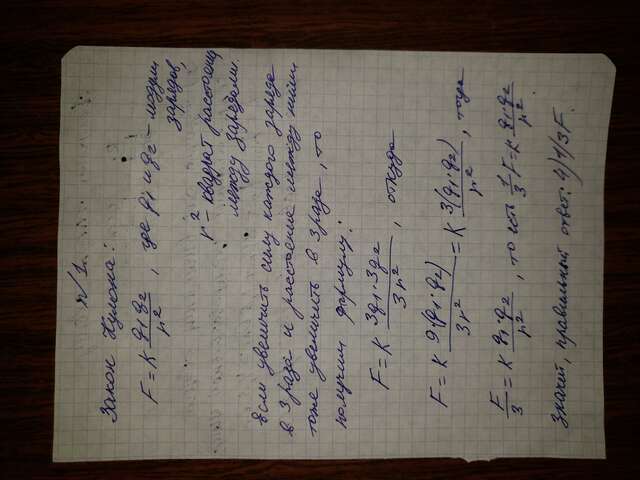 №1.
Закон Кулона:
F = K q₁·q₂/r², где q₁ и q₂ – модули
зарядов,
r² – квадрат расстояния
между зарядами.
Если увеличить силу каждого заряда
в 3 раза и расстояние между ними
тоже увеличить в 3 раза, то
получим формулу:
F = K 3q₁·3q₂/3r², откуда
F = K 9(q₁·q₂)/3r² = K 3(q₁·q₂)/r², тогда
F/3 = K q₁·q₂/r², то есть 1/3 F = K q₁·q₂/r².
Значит, правильный ответ: 4) 1/3F.